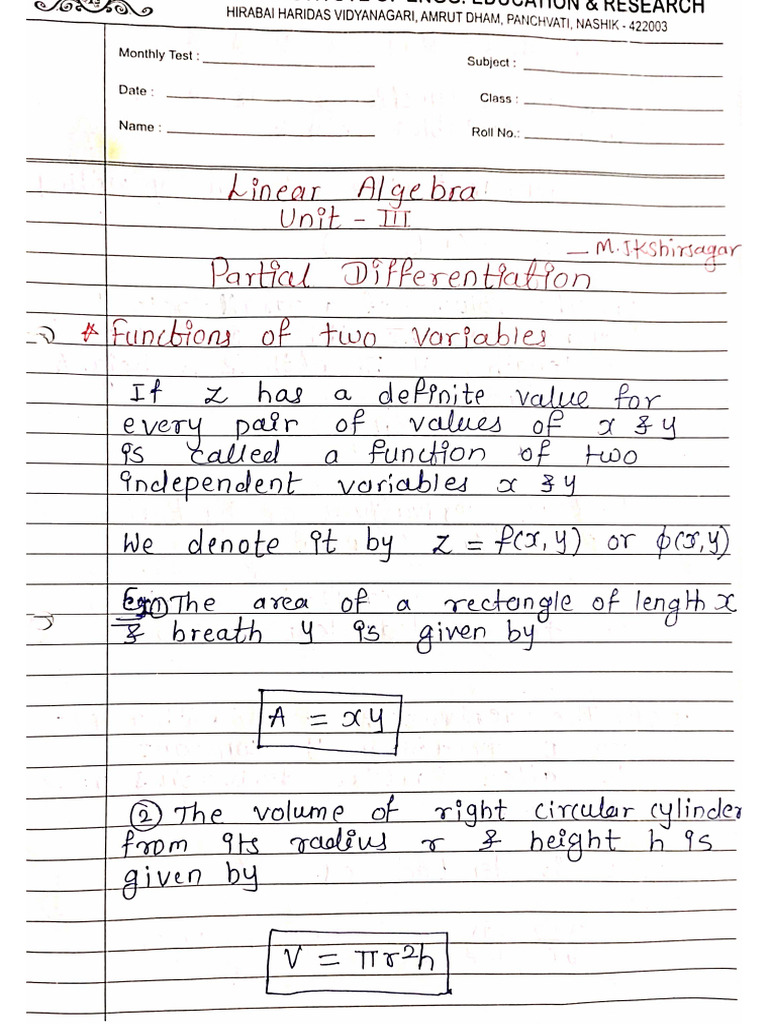 EDUCATION & RESEARCH
HIRABAI HARIDAS VIDYANAGARI, AMRUT DHAM, PANCHVATI, NASHIK - 422003
Monthly Test :
Subject :
Date :
Class :
Name :
Roll No.:
Linear Algebra
Unit - III
— M. J Kshirsagar
Partial Differentiation
* Functions of two variables
If z has a definite value for
every pair of values of x & y
is called a function of two
independent variables x & y
We denote it by z = f(x,y) or φ(x,y)
Eg① The area of a rectangle of length x
& breath y is given by
A = xy
② The volume of right circular cylinder
from its radius r & height h is
given by
V = πr²h